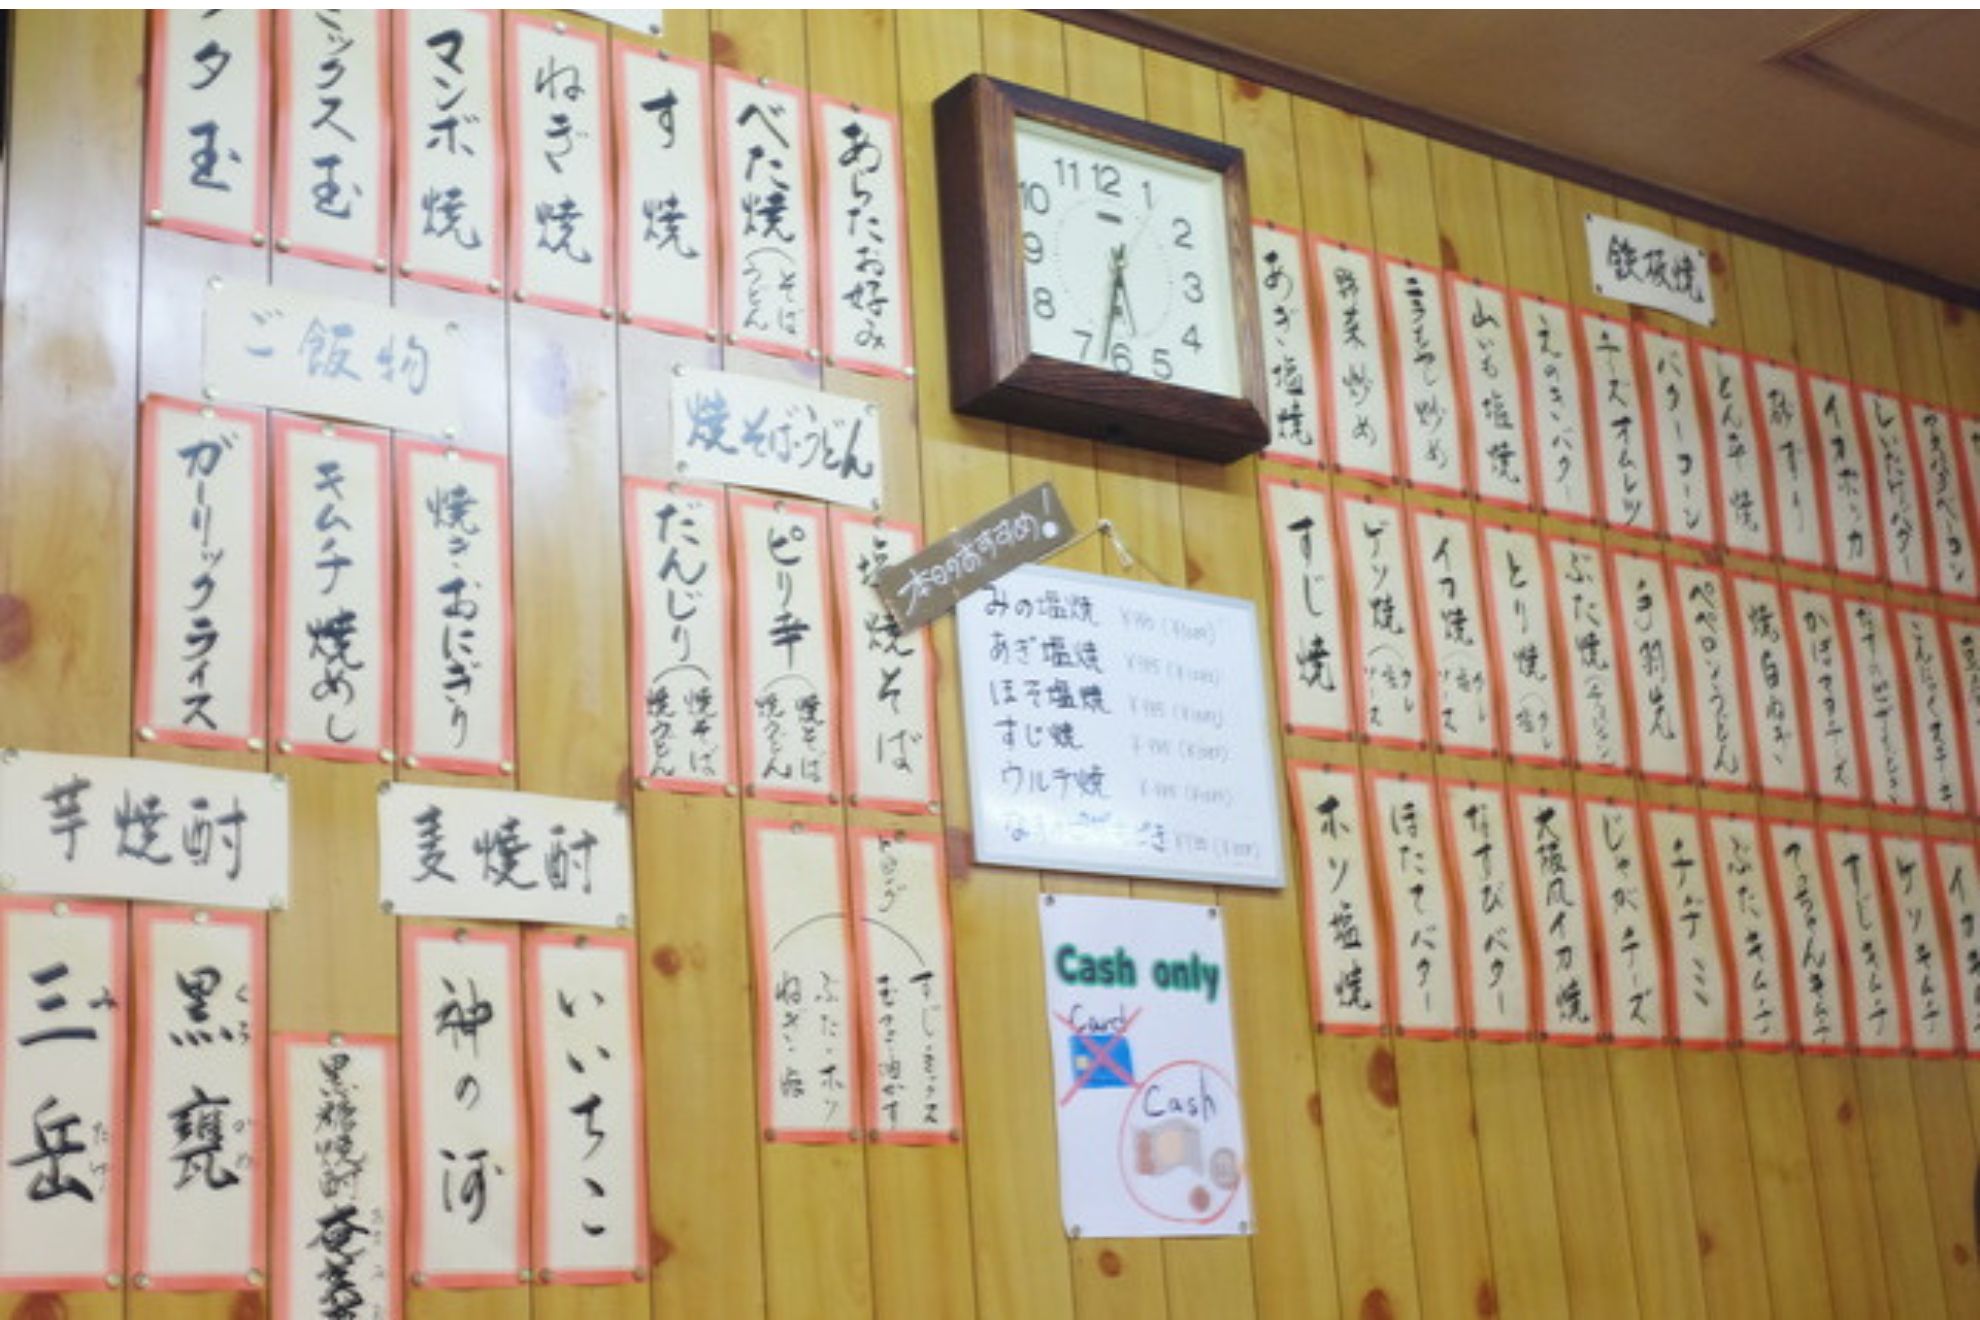 タ玉
ックス玉
マンボ焼
ねぎ焼
す焼
べた焼(そば うどん
あらたお好み
ご飯物
ガーリックライス
キムチ焼めし
焼きおにぎり
焼そば・うどん
だんじり(焼そば 焼うどん
ピリ辛(焼そば 焼うどん
塩焼そば
芋焼酎
三岳
みたけ
黒甕
くろかめ
黒糖焼酎
麦焼酎
神の河
いいちこ
すじ・ミックス
ぶた・ホソ
11 12 1
10 2
9 3
8 4
7 6 5
本日のおすすめ!
みの塩焼
あぎ塩焼
ほそ塩焼
すじ焼
ウルテ焼
Cash only
Card
Cash
鉄板焼
あぎ塩焼
野菜炒め
ニラもやし炒め
山いも塩焼
えのきバター
チーズオムレツ
バターコーン
とん平焼
砂ずり
イカポッカ
しいたけバター
すじ焼
ゲソ焼(タレ 塩 ソース
イカ焼(タレ 塩 ソース
とり焼(タレ 塩
ぶた焼
手羽先
ペペロンうどん
焼白ねぎ
かぼちゃチーズ
こんにゃくステーキ
ホソ塩焼
ほたてバター
なすびバター
大阪風イカ焼
じゃがチーズ
チヂミ
ぶたキムチ
てっちゃんキムチ
すじキムチ
ゲソキムチ